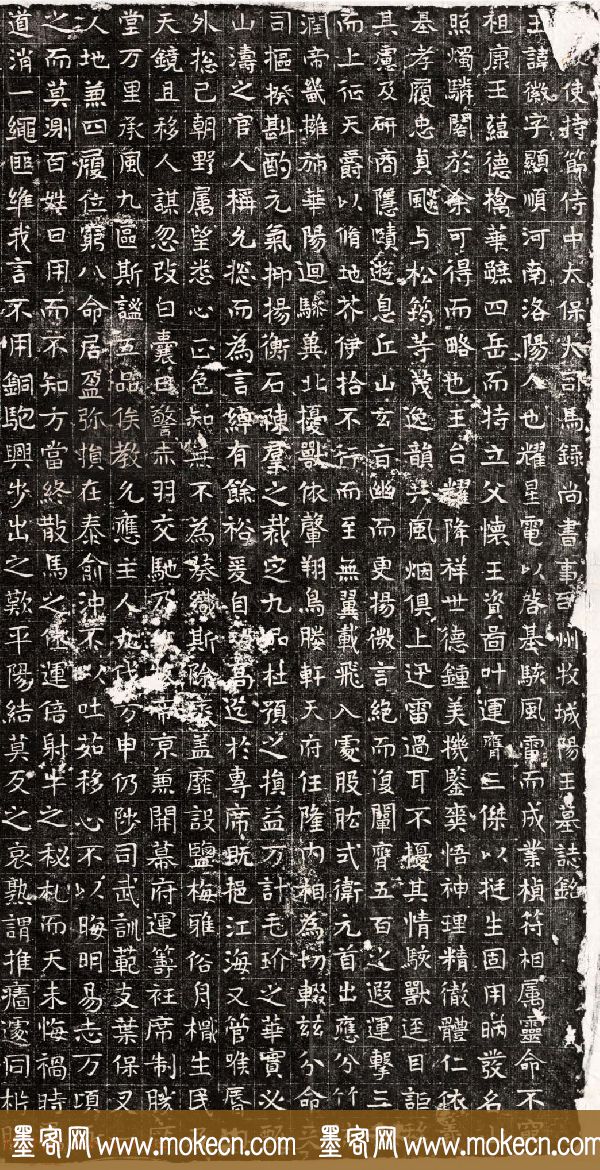 使持節侍中太保大司馬錄尚書事司州牧城陽王墓誌銘
王諱徽字顯順河南洛陽人也耀星電以啓基駭風雷而成業楨符相属靈命不
祖康王蘊德摛華瞧四岳而特立父懷王資啚叶運齊三傑以挺生固用昞發名
照燭驎閣於余可得而略也王台耀降祥世德鍾美機鑒奭悟神理精徹體仁依
基孝履忠貞飈与松筠等茂逸韻共風烟俱上迅雷過耳不擾其情駭獸逕目詎
其慮及研商隱賾遊息丘山玄旨幽而更揚微言絕而復闡齊五百之遐運擊三
而上征天爵以脩地芥伊拾不行而至無翼載飛入處股肱式衛元首出應分竹
潤帝畿擁旆華陽迴驂兾北擾獸依韾翔鳥勝軒天府任隆內相為切輟茲分命
司摳揆斟酌元氣抑揚衡石陳羣之裁定九品杜預之損益万計毛玠之華實必
山濤之官人稱允摐而為言綽有餘裕爰自於專席既挹江海又管喉脣
外捴己朝野属望悉心正色知無不為葵斯除蓋靡設鹽梅雅俗舟檝生民
天鏡且移人謀忽改白囊曰警赤羽交馳乃京兼開幕府運籌衽席制勝
堂万里承風九區斯謐五品俟教允應主人九伐方申仍陟司武訓範支葉保乂
人地兼四履位窮八命居盈弥損在泰俞沖不以吐茹移心不以晦明易志万頃
之而莫測百姓日用而不知方當終散馬之運倍射牛之秘札而天未悔禍時
道消一繩匪維我言不用銅駝興步出之歎平陽結莫反之哀熟謂推癗遂同析
墨客网 www.mokecn.com 墨客网 www.mokecn.com